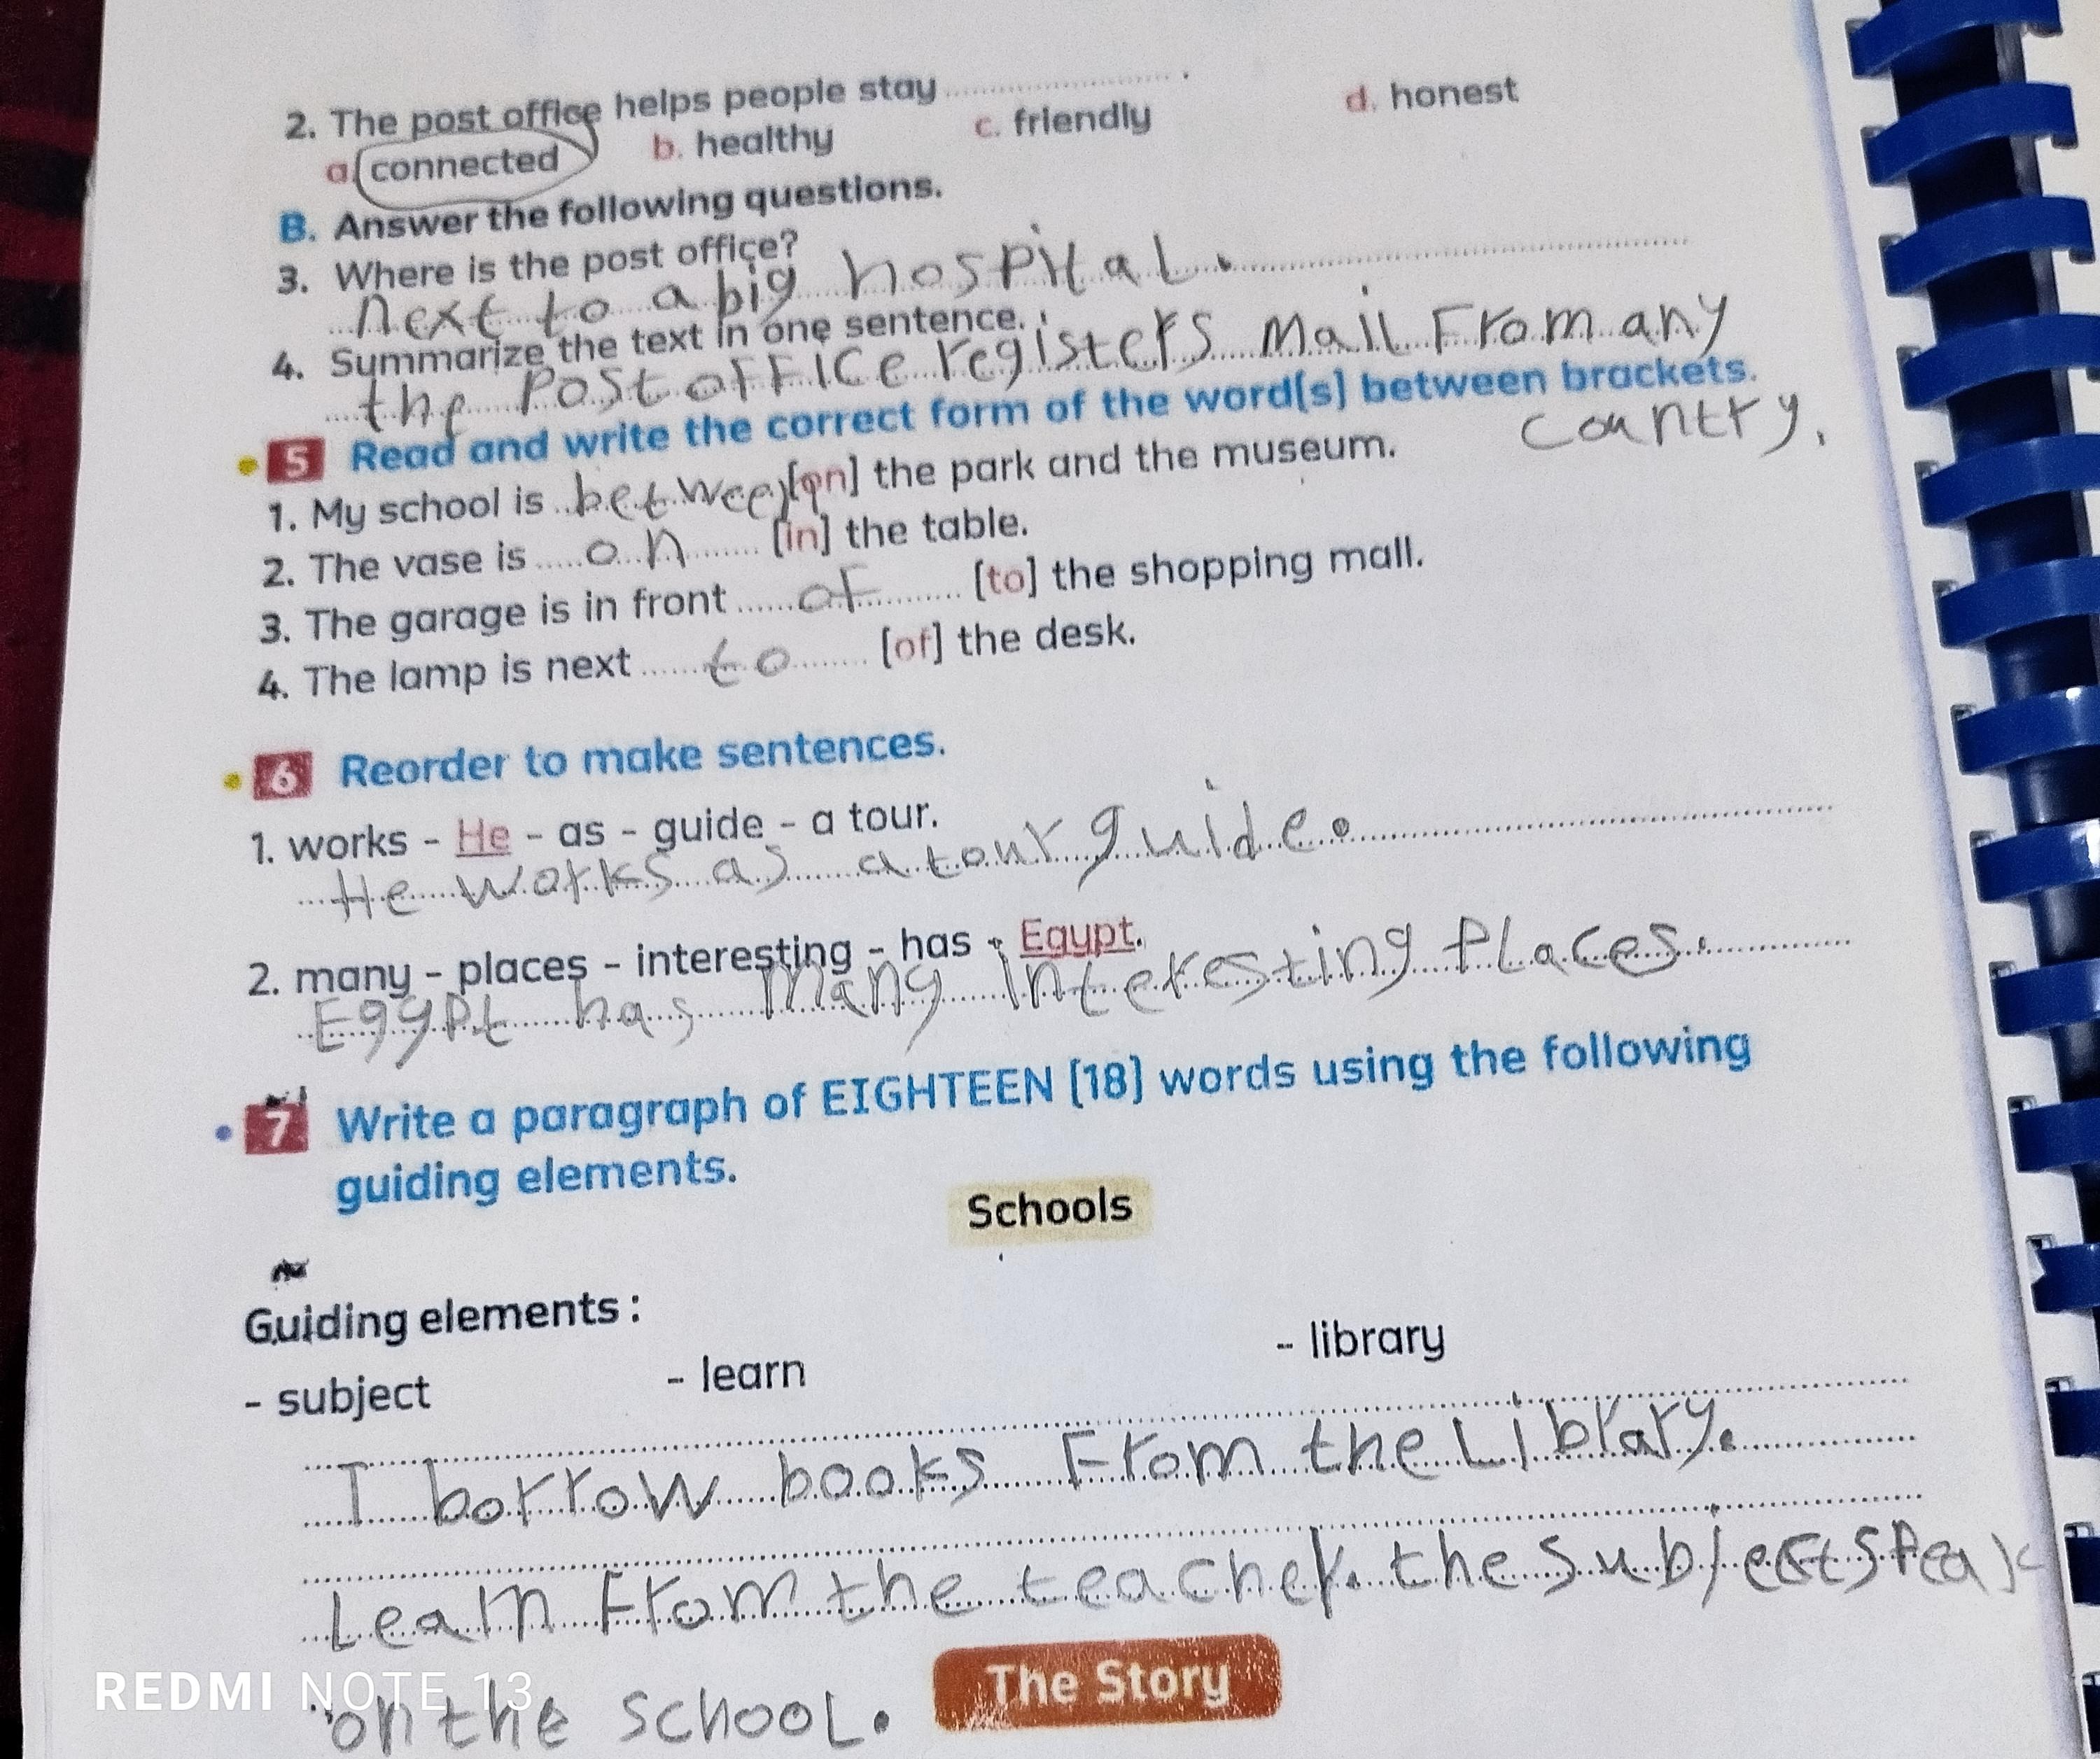 2. The post office helps people stay .................... .
a. connected b. healthy c. friendly d. honest
B. Answer the following questions.
3. Where is the post office?
next to a big hospital.
4. Summarize the text in one sentence.
the Post oFFice registers Mail From any
country.
5 Read and write the correct form of the word(s) between brackets.
1. My school is between [on] the park and the museum.
2. The vase is on [in] the table.
3. The garage is in front of [to] the shopping mall.
4. The lamp is next to [of] the desk.
6 Reorder to make sentences.
1. works - He - as - guide - a tour.
He works as a tour guide.
2. many - places - interesting - has - Egypt.
Egypt has many interesting Places.
7 Write a paragraph of EIGHTEEN (18) words using the following
guiding elements.
Schools
Guiding elements :
- subject - learn - library
I borrow books From the Library.
Learn From the teacher. the subject speak
on the school.
The Story
REDMI NOTE 13